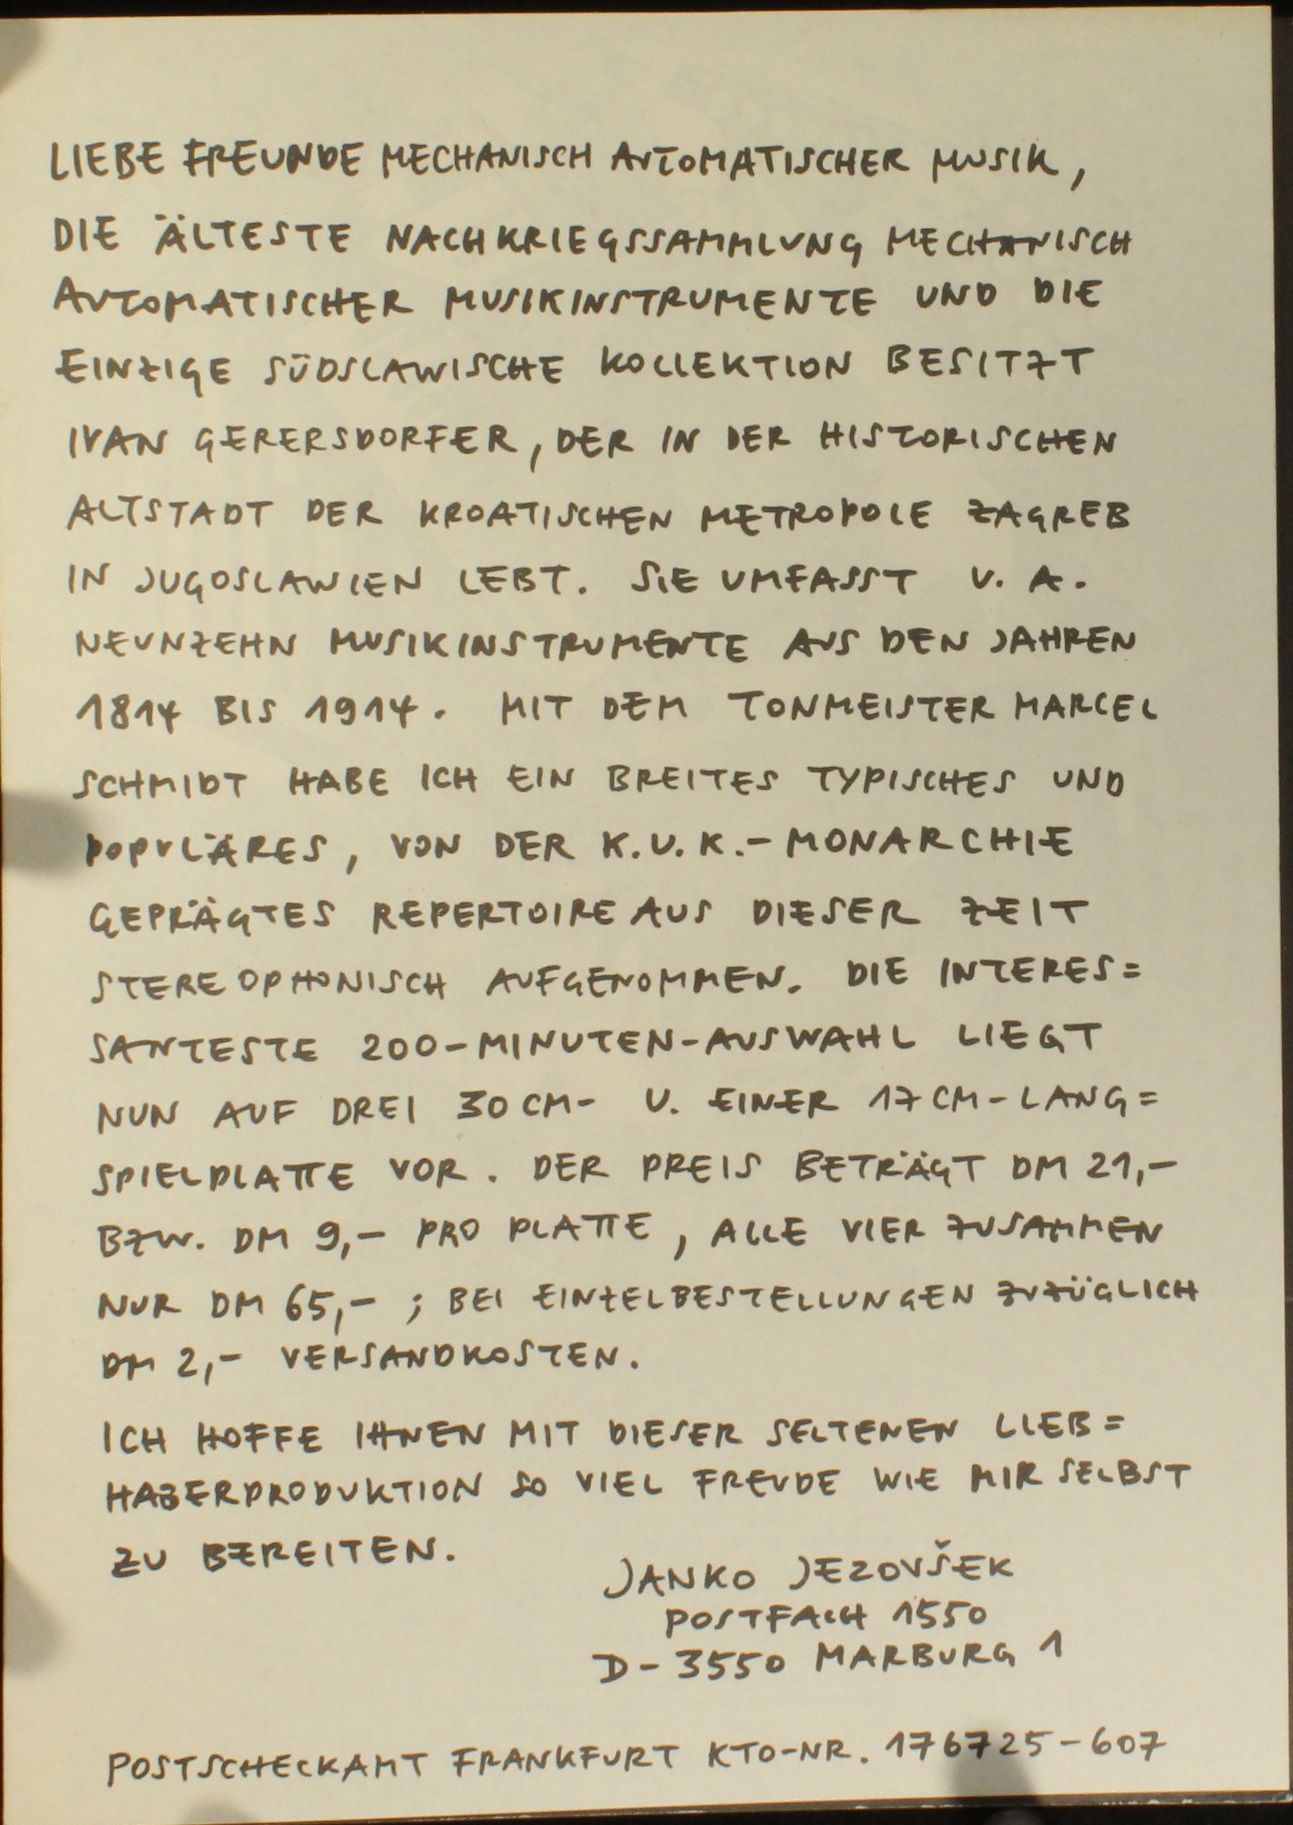 LIEBE FREUNDE MECHANISCH AUTOMATISCHER MUSIK,
DIE ÄLTESTE NACHKRIEGSSAMMLUNG MECHANISCH
AUTOMATISCHER MUSIKINSTRUMENTE UND DIE
EINZIGE SÜDSLAWISCHE KOLLEKTION BESITZT
IVAN GERERSDORFER, DER IN DER HISTORISCHEN
ALTSTADT DER KROATISCHEN METROPOLE ZAGREB
IN JUGOSLAWIEN LEBT. SIE UMFASST U. A.
NEUNZEHN MUSIKINSTRUMENTE AUS DEN JAHREN
1814 BIS 1914. MIT DEM TONMEISTER MARCEL
SCHMIDT HABE ICH EIN BREITES TYPISCHES UND
POPULÄRES, VON DER K.U.K.-MONARCHIE
GEPRÄGTES REPERTOIRE AUS DIESER ZEIT
STEREOPHONISCH AUFGENOMMEN. DIE INTERES=
SANTESTE 200-MINUTEN-AUSWAHL LIEGT
NUN AUF DREI 30CM- U. EINER 17CM-LANG=
SPIELPLATTE VOR. DER PREIS BETRÄGT DM 21,-
BZW. DM 9,- PRO PLATTE, ALLE VIER ZUSAMMEN
NUR DM 65,- ; BEI EINZELBESTELLUNGEN ZUZÜGLICH
DM 2,- VERSANDKOSTEN.
ICH HOFFE IHNEN MIT DIESER SELTENEN LIEB=
HABERPRODUKTION SO VIEL FREUDE WIE MIR SELBST
ZU BEREITEN.
JANKO JEZOVŠEK
POSTFACH 1550
D-3550 MARBURG 1
POSTSCHECKAMT FRANKFURT KTO-NR. 176725-607